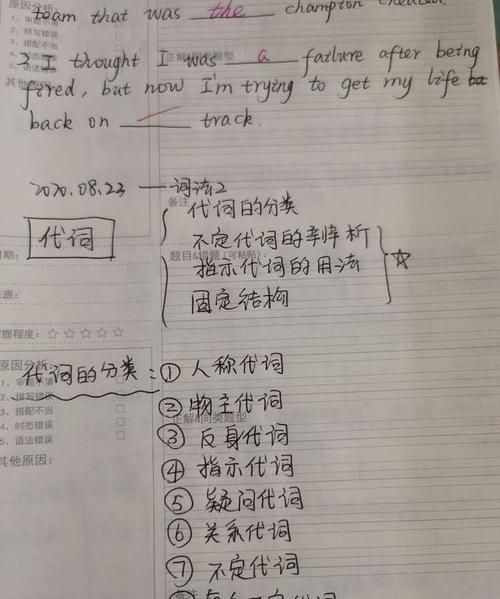 team that was the champion cheated.
2. I thought I was a failure after being
fired, but now I'm trying to get my life
back on / track.
原因分析:
1、审题不清
2、拼写错误
3、搭配不当
4、时态错误
5、语法错误
其他原因:
正解&同类题型
2020.08.23 — 词法2
备注
代词
代词的分类
不定代词的辨析
指示代词的用法
固定结构
题目&错题(可粘贴)
☆
日期:
来源:
掌握程度:☆☆☆☆☆
原因分析:
1、审题不清
2、拼写错误
3、搭配不当
4、时态错误
5、语法错误
其他原因:
正解&同类题型
代词的分类:① 人称代词
② 物主代词
③ 反身代词
④ 指示代词
⑤ 疑问代词
⑥ 关系代词
⑦ 不定代词